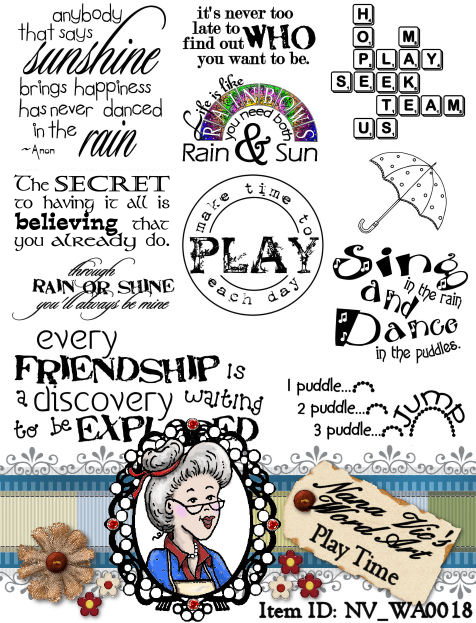 anybody
that says
sunshine
brings happiness
has never danced
in the
rain
~Anon
it's never too
late to
find out WHO
you want to be.
Life is like
RAINBOWS
you need both
Rain & Sun
H
O M
PLAY
SEEK
TEAM
US
The SECRET
to having it all is
believing that
you already do.
make time to
PLAY
each day
through
RAIN OR SHINE
you'll always be mine
Sing
in the rain
and
Dance
in the puddles.
every
FRIENDSHIP is
a discovery waiting
to be EXPL ED
1 puddle...
2 puddle...
3 puddle...
JUMP
Nana Vic's
Word Art
Play Time
Item ID: NV_WA0018